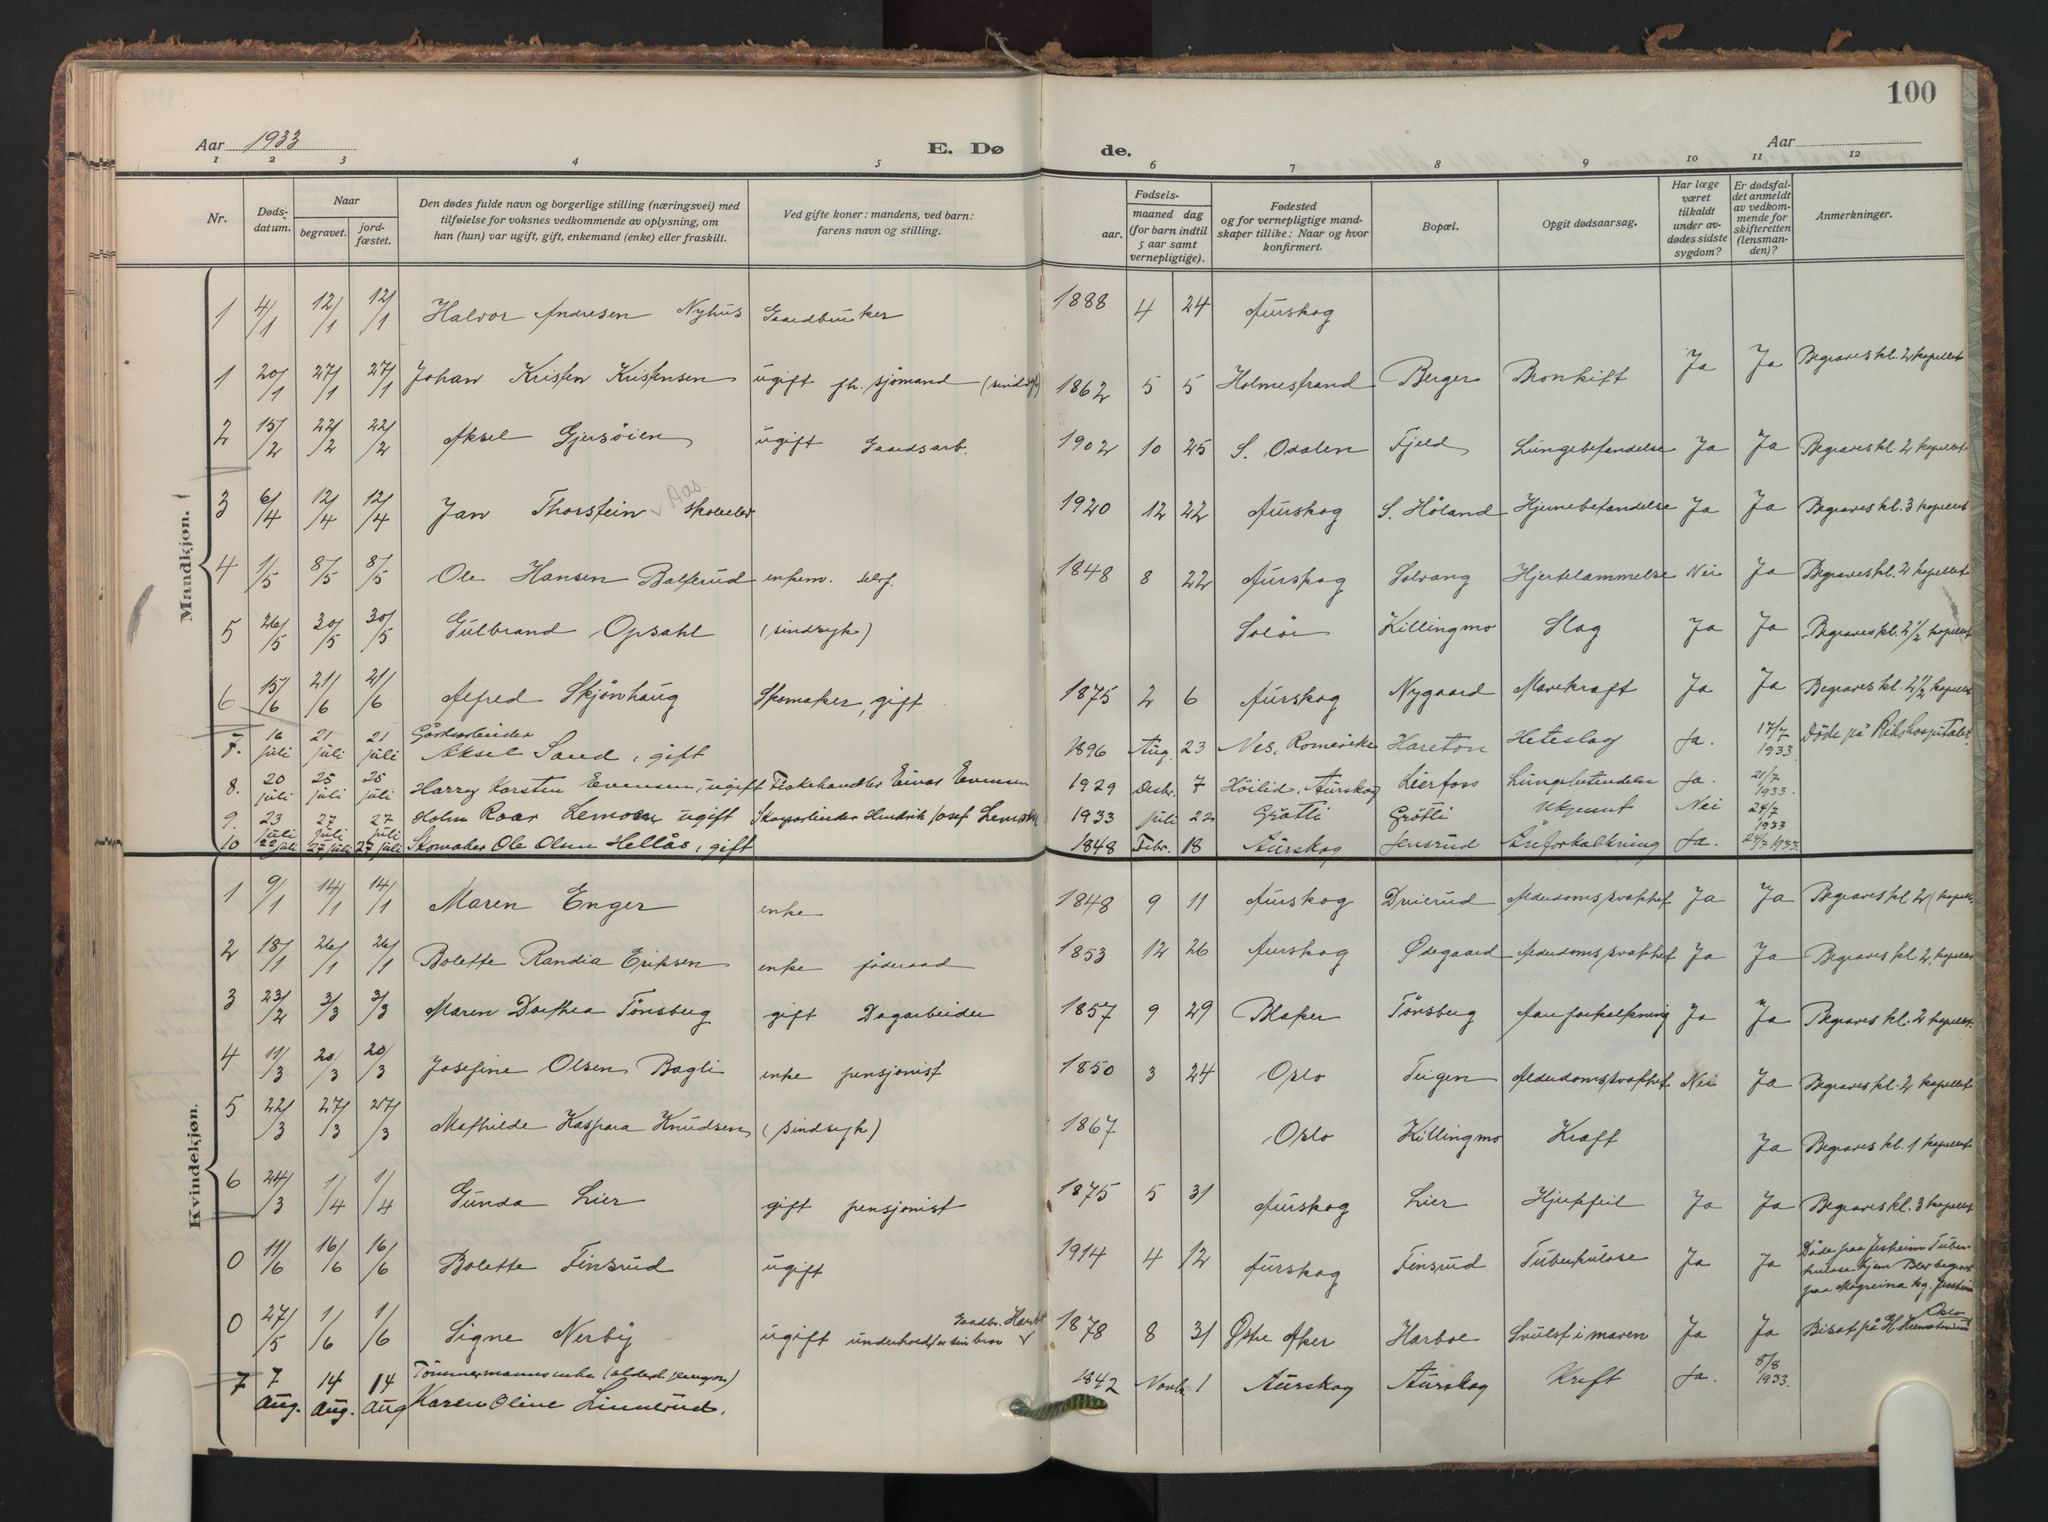 100
Aar 1933
E. Dø
de.
Aar
1 2 3 4 5 6 7 8 9 10 11 12
Nr.
Døds-
datum.
Naar
begravet.
jord-
fæstet.
Den dødes fulde navn og borgerlige stilling (næringsvei) med
tilføielse for voksnes vedkommende av oplysning, om
han (hun) var ugift, gift, enkemand (enke) eller fraskilt.
Ved gifte koner: mandens, ved barn:
farens navn og stilling.
Fødsels-
aar.
maaned dag
(for barn indtil
5 aar samt
vernepligtige).
Fødested
og for vernepligtige mand-
skaper tillike: Naar og hvor
konfirmert.
Bopæl.
Opgit dødsaarsag.
Har læge
været
tilkaldt
under av-
dødes sidste
sygdom?
Er dødsfal-
det anmeldt
av vedkom-
mende for
skifteretten
(lensman-
den)?
Anmerkninger.
Mandkjøn.
1 4/1 12/1 12/1 Halvor Andresen Nyhus Gaardbruker 1888 4 24 Aurskog
1 20/1 27/1 27/1 Johan Kristen Kristensen ugift fh. sjømand 1862 5 5 Holmestrand Berger Bronkift Ja Ja Begraves kl. 2 kapellet
2 15/2 22/2 22/2 Aksel Gjersøien ugift Gaardsarb. 1902 10 25 S. Odalen Fjeld Lungebetændelse Ja Ja Begraves kl. 2 kapellet
3 6/4 12/4 12/4 Jan Thorstein Aas. skoleelev 1920 12 22 Aurskog S. Høland Hjernebetændelse Ja Ja Begraves kl. 3 kapellet
4 1/5 8/5 8/5 Ole Hansen Balterud enkem. selvf. 1848 8 22 Aurskog Solvang Hjertelammelse Nei Ja Begraves kl. 2 kapellet
5 26/5 30/5 30/5 Gulbrand Opsahl (sindsyk) Solør Killingmo Slag Ja Ja Begraves kl. 2 1/2 kapellet
6 15/6 21/6 21/6 Alfred Skjønhaug Skomaker, gift 1875 2 6 Aurskog Nygaard Mavekraft Ja Ja Begraves kl. 2 1/2 kapellet
7. 16 juli 21 juli 21 juli Gårdsarbeider
Aksel Sand, gift 1896 Aug. 23 Nes, Romerike Hareton Heteslag Ja. 17/7 1933 Døde på Rikshospitalet.
8. 20 juli 25 juli 25 juli Harry Karsten Evensen, ugift Fiskehandler Einar Evensen 1929 Desbr. 7 Høilid, Aurskog Lierfoss Lungebetendelse Ja. 21/7 1933.
9. 23 juli 27 juli 27 juli Holm Roar ugift Skogarbeider Hendrik Josef 1933 juli 22 Grøtli Grøtli Ukjennt Nei 24/7 1933
10 22 juli 27 juli 27 juli Skomaker Ole Olsen Hellås, gift 1848 Febr. 18 Aurskog Jensrud Åreforkalkning Ja. 24/7 1933.
Kvindekjøn.
1 9/1 14/1 14/1 Maren Enger enke 1848 9 11 Aurskog Dvierud Alderdomssvakhet Ja Ja Begraves kl. 2
2 18/1 26/1 26/1 Bolette Randia Eriksen enke føderaad 1853 12 26 Aurskog Ødegaard Alderdomssvakhet Ja Ja Begraves kl. 2. kapellet
3 23/2 3/3 3/3 Maren Dorthea Tønsberg gift Dagarbeider 1857 9 29 Blaker Tønsberg Aareforkalkning Ja Ja Begraves kl. 2 kapellet.
4 11/3 20/3 20/3 Josefine Olsen Bagli enke pensjonist 1850 3 24 Oslo Teigen Alderdomssvakhet Nei Ja Begraves kl. 2 kapellet
5 22/3 27/3 27/3 Mathilde Kaspara Knudsen (sindsyk) 1867 Oslo Killingmo Kræft Ja Begraves kl. 1 kapellet
6 24/3 1/4 1/4 Gunda Lier gift pensjonist 1875 5 31 Aurskog Lier Hjertefeil Ja Ja Begraves kl. 3 kapellet
0 11/6 16/6 16/6 Bolette Finsrud ugift 1914 4 12 Aurskog Finsrud Tuberkulose Ja Ja Døde paa Jesheim Tuber-
kulose hjem Blev begravet
paa Mogreina kg. Jessheim
0 27/5 1/6 1/6 Signe Nerby ugift underholdt av sin bror Gaardbr. Harboe 1878 8 31 Østre Aker Harboe Svulst i maven Ja Ja Bisat på Krematorium Oslo
7 7 Aug. 14 Aug. 14 Aug Tømmermannsenke
Karen Oline Linnerud. 1842 Novbr. 1 Aurskog Aurskog Kreft Ja. 8/8 1933.